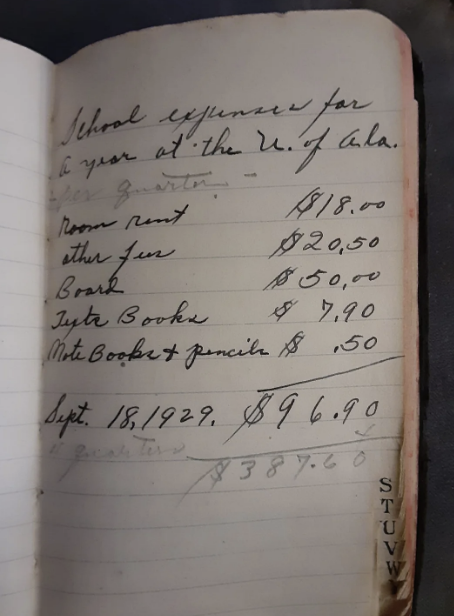 School expenses for
a year at the U. of Ala.
per quarter -
room rent $18.00
other fees $20.50
Board $50.00
Texts Books $ 7.90
Note Books & pencils $ .50
Sept. 18, 1929. $96.90
quarters
$387.60
S
T
U
V
W